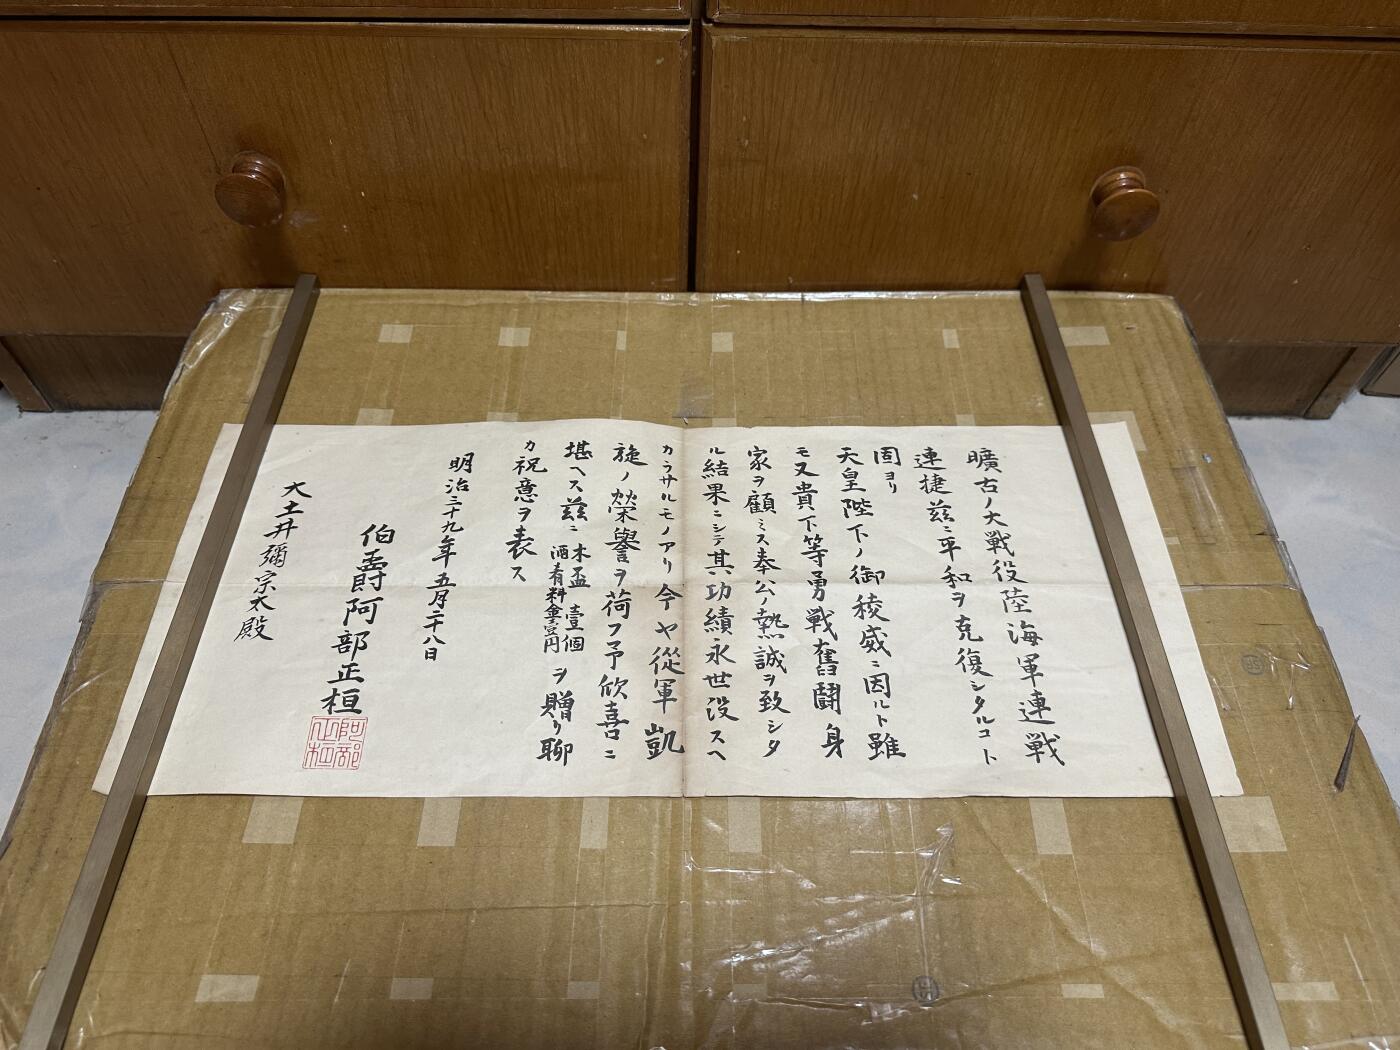 曠古ノ大戰役陸海軍連戰
連捷茲ニ平和ヲ克復シタルコト
固ヨリ
天皇陛下ノ御稜威ニ因ルト雖
モ又貴下等勇戰奮鬪身
家ヲ顧ミス奉公ノ熱誠ヲ致シタ
ル結果ニシテ其功績永世沒スヘ
カラサルモノアリ今ヤ從軍凱
旋ノ榮譽ヲ荷フ予欣喜ニ
堪ヘス茲ニ木盃壹個酒肴料金壹円ヲ贈リ聊
カ祝意ヲ表ス
明治三十九年五月二十八日
伯爵阿部正桓
阿部正桓
大土井彌宗太殿